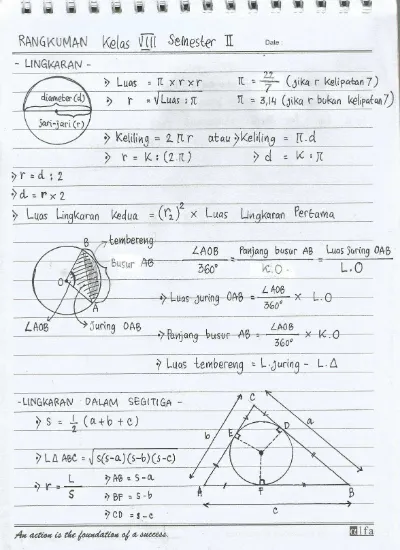 RANGKUMAN Kelas VIII Semester II
Date
- LINGKARAN -
diameter (d)
jari-jari (r)
» Luas = π x r x r
π = 22/7 (jika r kelipatan 7)
» r = √Luas : π
π = 3,14 (jika r bukan kelipatan 7)
» Keliling = 2 π r atau » Keliling = π.d
» r = K : (2.π) » d = K : π
» r = d : 2
» d = r x 2
» Luas Lingkaran Kedua = (r₂)² x Luas Lingkaran Pertama
B
tembereng
Busur AB
O
A
∠AOB
Juring OAB
∠AOB/360° = Panjang busur AB/K.O = Luas Juring OAB/L.O
» Luas juring OAB = ∠AOB/360° x L.O
» Panjang busur AB = ∠AOB/360° x K.O
» Luas tembereng = L.juring - L.Δ
-LINGKARAN DALAM SEGITIGA -
» S = 1/2 (a+b+c)
» LΔ ABC = √s(s-a)(s-b)(s-c)
» r = L/S
» AB = s-a
» BF = s-b
» CD = s-c
C
a
b
E
D
A
F
B
c
An action is the foundation of a success.
lfa